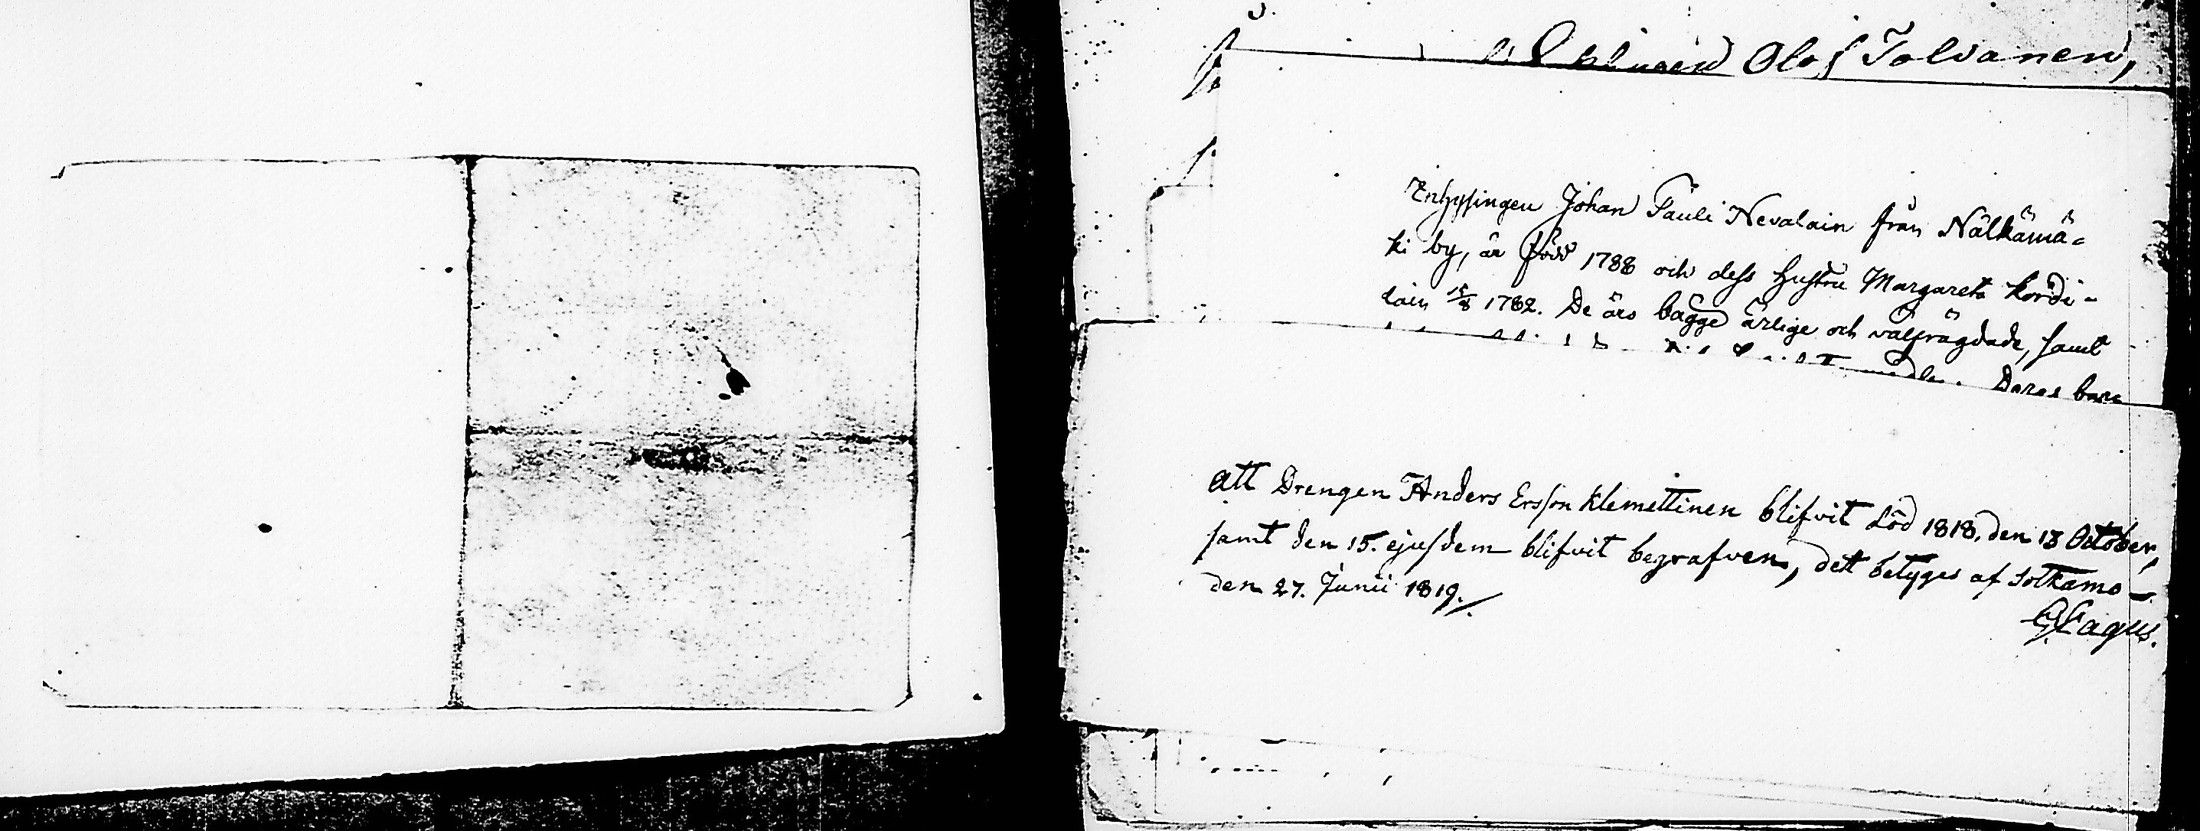 Olof Tolvanen,
Inhysingen Johan Pauli Nevalain från Nälkämä-
ki by, är född 1788 och dess hustru Margareta Kordi-
lain 15/8 1782. De äro bägge ärlige och välfrägdade, samt
Deras barn
att Drengen Anders Ersson Klemettinen blifvit död 1818, den 13 October,
samt den 15. ejusdem blifvit begrafven, det betyges af Sotkamo
den 27. Junii 1819.
G. Fagus.